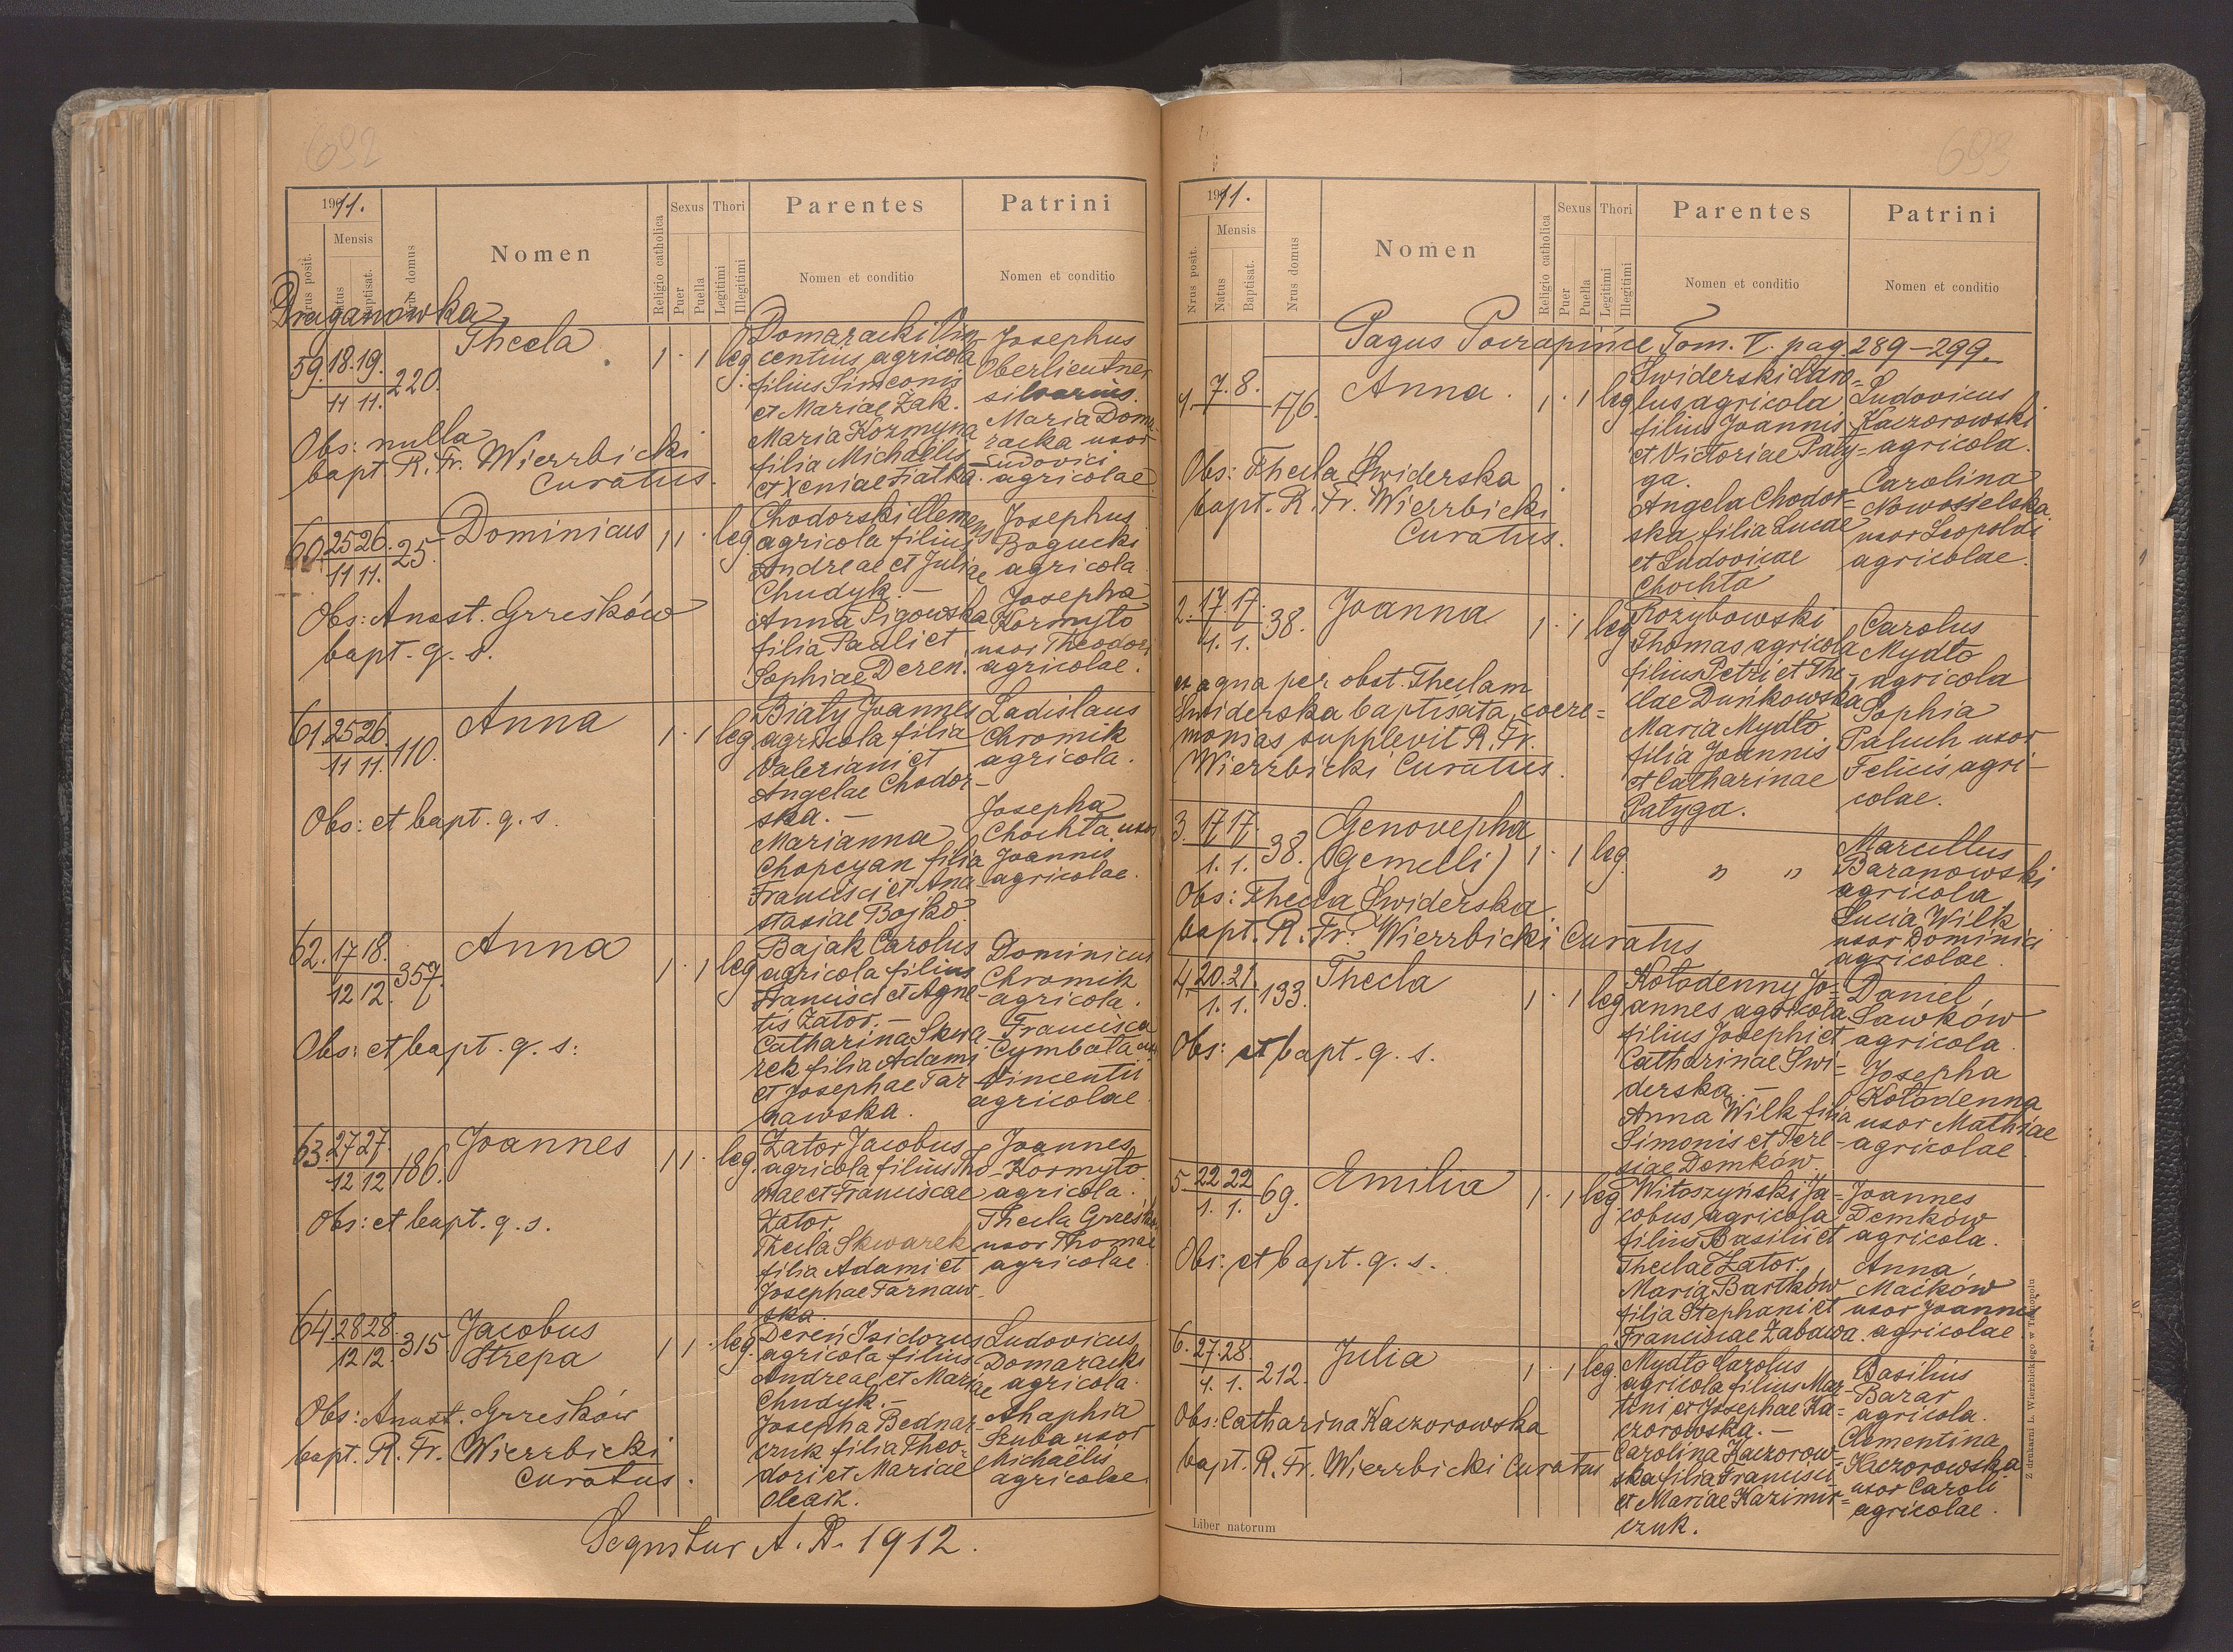 692
1911.
Nrus posit.
Mensis
Natus
Baptisat.
Nrus domus
Nomen
Religio catholica
Sexus
Puer
Puella
Thori
Legitimi
Illegitimi
Parentes
Nomen et conditio
Patrini
Nomen et conditio
Draganówka
59. 18. 19. 220. Thecla 1 · 1 leg.
11 11.
Domaracki Vin-
centius agricola
filius Simeonis
et Mariae Żak.
Maria Kozmyna
filia Michaelis
et Xeniae Fiałka.
Josephus
Oberlieutner
silvarius.
Maria Doma-
racka uxor
Ludovici
agricolae.
Obs: nulla
bapt. R. Fr. Wierzbicki
Curatus.
60. 25 26. 25. Dominicus 1 1 · leg.
11 11.
Chodorski Clemens
agricola filius
Andreae et Juliae
Chudyk. —
Anna Pigowska
filia Pauli et
Sophiae Deren.
Josephus
Bogucki
agricola
Josepha
Kormyło
uxor Theodori
agricolae.
Obs: Anast. Grześków
bapt. q. s.
61. 25 26 110. Anna 1 · 1 leg.
11 11.
Biały Joannes
agricola filius
Valeriani et
Angelae Chodor-
ska. —
Marianna
Chopcyan filia
Francisci et Ana-
stasiae Bojko.
Ladislaus
Chromik
agricola.
Josepha
Chochta uxor
Joannis
agricolae.
Obs: et bapt. q. s.
62. 17 18. 357. Anna 1 · 1 leg
12 12.
Bajak Carolus
agricola filius
Francisci et Agne-
tis Zator. —
Catharina Skwa-
rek filia Adami
et Josephae Tar-
nawska.
Dominicus
Chromik
agricola.
Francisca
Cymbała uxor
Vincentii
agricolae
Obs: et bapt. q. s:
63. 27 27. 186. Joannes 1 1 · leg.
12 12
Zator Jacobus
agricola filius Tho-
mae et Franciscae
Zator.
Thecla Skwarek
filia Adami et
Josephae Tarnaw-
ska.
Joannes
Kormyło
agricola.
Thecla Grześków
uxor Thomae
agricolae.
Obs: et bapt. q. s.
64 28 28. 315. Jacobus 1 1 · leg.
12 12.
Strepa
Dereń Isidorus
agricola filius
Andreae et Mariae
Chudyk. —
Josepha Bednar-
czuk filia Theo-
dori et Mariae
Oleark.
Ludovicus
Domaracki
agricola.
Ahaphia
Szuba uxor
Michaëlis
agricolae.
Obs: Anast. Grześków
bapt. R. Fr. Wierzbicki
Curatus.
Sequitur A. D. 1912.
693
1911.
Nrus posit.
Mensis
Natus
Baptisat.
Nrus domus
Nomen
Religio catholica
Sexus
Puer
Puella
Thori
Legitimi
Illegitimi
Parentes
Nomen et conditio
Patrini
Nomen et conditio
Pagus Poczapińce Tom. V. pag. 289-299.
1. 7. 8. 176. Anna. 1 · 1 leg
Świderski
agricola
filius Joannis
et Victoriae Paty=
ga.
Angela Chodor=
ska filia Lucae
et Ludovicae
Chochta
Ludovicus
Kaczorowski
agricola.
Carolina
Nowosielska
uxor Leopoldi
agricolae.
Obs: Thecla Świderska
bapt. R. Fr. Wierzbicki
Curatus.
2. 17. 17. 38. Joanna 1 · 1 leg
1. 1.
Rozybowski
Thomas agricola
filius Petri et The-
clae Duńkowska
Maria Mydło
filia Joannis
et Catharinae
Patyga.
Carolus
Mydło
agricola
Sophia
Paluch uxor
Felicis agri-
colae.
ex aqua per obst. Theclam
Świderska baptisata, coere=
monias supplevit R. Fr.
Wierzbicki Curatus.
3. 17 17. 38. Genovepha 1 · 1 leg.
1. 1.
(gemelli)
" "
Marcellus
Baranowski
agricola
Lucia Wilk
uxor Dominici
agricolae.
Obs: Thecla Świderska
bapt. R. Fr. Wierzbicki Curatus
4. 20. 21. 133. Thecla 1 · 1 leg
1. 1.
Kołodenny Jo=
annes agricola
filius Josephi et
Catharinae Świ=
derska. —
Anna Wilk filia
Simonis et Tere-
siae Domków.
Daniel
Sawków
agricola.
Josepha
Kołodenna
uxor Mathiae
agricolae.
Obs: et bapt. q. s.
5 22 22 69. Emilia 1 · 1 leg
1. 1.
Witoszyński Ja=
cobus agricola
filius Basilii et
Theclae Zator.
Maria Bartków
filia Stephani et
Franciscae Zabawa.
Joannes
Demków
agricola.
Anna
Maćków
uxor Joannis
agricolae
Obs: et bapt. q. s.
6. 27. 28 212. Julia 1 · 1 leg.
1. 1.
Mydło Carolus
agricola filius Mar-
tini et Josephae Ka=
czorowska. —
Carolina Kaczorow=
ska filia Francisci
et Mariae Kazimir=
czuk.
Basilius
Barar
agricola.
Clementina
Kaczorowska
uxor Caroli
agricolae.
Obs: Catharina Kaczorowska
bapt. R. Fr. Wierzbicki Curatus
Liber natorum
Z drukarni L. Wierzbickiego w Tarnopolu